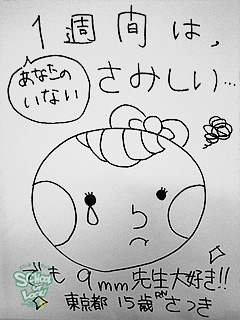 1週間は、
あなたの
いない
さみしい…
でも 9mm先生大好き!!
東京都 15歳 RN さつき
SCHOOL OF LOCK!